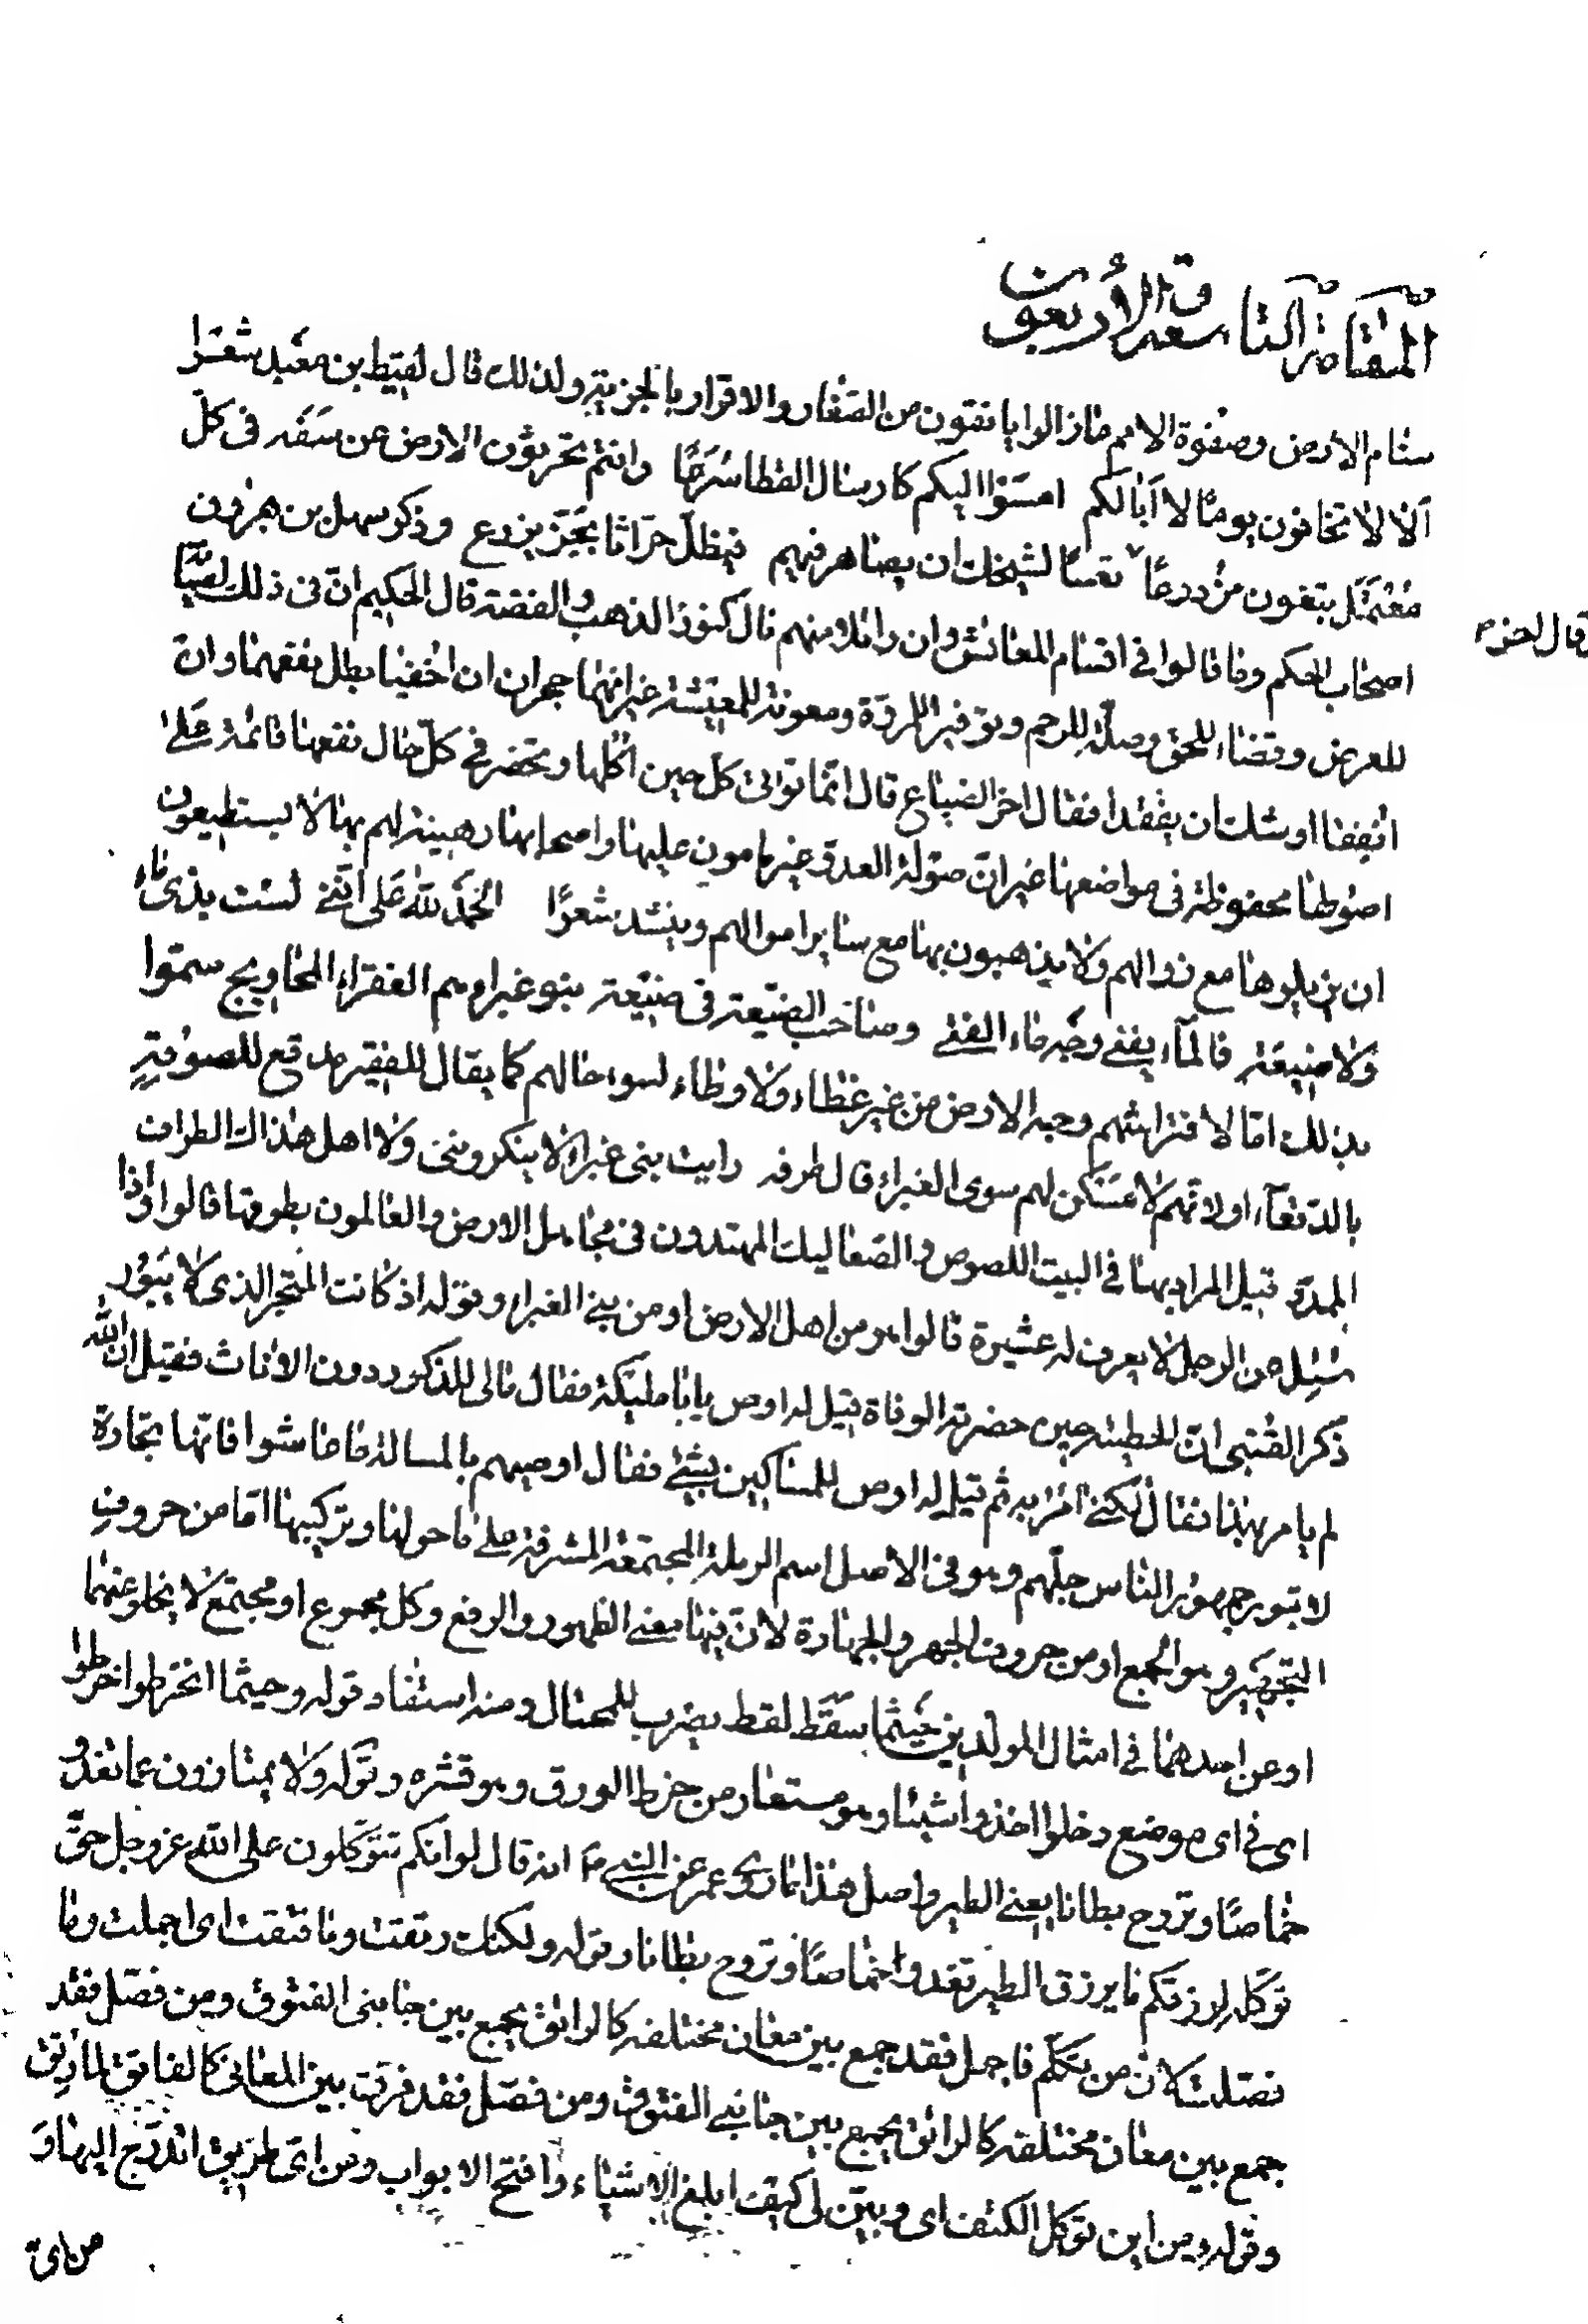 المقامة التاسعة والأربعون
سنام الارض وصفوة الامم مازالوا يانفون من الصغار والاقرار بالجزية ولذلك قال لقيط بن معبد شعرا
ألا لا تخافون يومًا لا أبالكم امسوا اليكم كارسال القطا سُرَحًا وانتم تحرثون الارض عن سفه فى كلّ
مُعْتَمَل يبتغون مزدرعًا تعسًا لشيخك ان يصاهر فيهم فيظلّ حرّاثا يزرع وذكر سهل بن هرون
اصحاب الحكم وما قالوا فى اقسام المعائش وان رابلا منهم قال كنوز الذهب والفضة قال الحكيم انّ فى ذلك لصيًّا
قال اخر
للعرض وقضاء للحق وصلة للرحم وتوفير المروّة ومعونة للمعيشة غير انهما حجران ان اخفيا بطل نفعهما وان
انفقا اوشك ان يفقدا فقال اخر الضياع قال انّما تواتى كل حين اكلها وتحضر فى كلّ حال نفعها قائمة على
اصولها محفوظة فى مواضعها غير انّ صولة العدوّ غير مامون عليها واصحابها رهينة لهم بها لا يستطيعون
ان يزيلوها مع زوالهم ولا يذهبون بها مع سائر اموالهم وينشد شعرًا الحمد لله على اننى لست بذى ماء
ولا ضيعة فالماء يفنى وجه ماء الفتى وصاحب الضيعة فى ضيعة بنو غبراء هم الفقراء المحاويج سمّوا
بذلك امّا لافتراشهم وجه الارض من غير غطاء ولا وطاء لسوء حالهم كما يقال للفقير مدقع للصوقه
بالدقعاء او لانّهم لا مسكن لهم سوى الغبراء قال طرفه رايت بنى غبراء لا ينكروننى ولا اهل هذاك الطراف
الممدّد قيل المراد بها فى البيت اللصوص والصعاليك المهتدون فى مجاهل الارض والعالمون بطرقها قالوا واذا
سُئِل عن الرجل لا يعرف له عشيرة قالوا هو من اهل الارض او من بنى الغبراء وقوله اذ كانت المتجر الذى لا يبور
ذكر القتبى انّ الحطيئة حين حضرته الوفاة قيل له اوص يا با مليكة فقال مالى للذكور دون الاناث فقيل ان الله
لم يامر بهذا فقال لكنى آمر به ثم قيل له اوص للمساكين بشئ فقال اوصيهم بالمسالة ما عاشوا فانّها تجارة
لا تبور جمهور الناس جلّهم وهو فى الاصل اسم الرملة المجتمعة المشرفة على ما حولها وتركيبها امّا من حروف
التجمير وهو الجمع او من حروف الجهر والجهارة لانّ فيها معنى الظهور والرفع وكل مجموع او مجتمع لا يخلو عنهما
او عن احدهما فى امثال المولّدين حيثما سقط لقط يضرب للمحتال ومنه استفاد قوله وحيثما انخرطوا خرطوا
اى فى اى موضع دخلوا اخذوا شيئا وهو مستعار من خرط الورق وهو قشره وقوله ولا يمتازون عما تغدو
خماصًا وتروح بطانا يعنى الطير واصل هذا ما روى عمر عن النبى ص انه قال لو انّكم تتوكّلون على الله عزوجل حقّ
توكّله لرزقكم ما يرزق الطير تغدوا خماصًا وتروح بطانا وقوله ولكنك رتقت وما فتقت اى اجملت وما
فصّلت كانّ من تكلّم فاجمل فقد جمع بين معان مختلفه كالراتق يجمع بين جانبى الفتوق ومن فصّل فقد
جمع بين معان مختلفه كالراتق يجمع بين جانبى الفتوق ومن فصّل فقد فرّق بين المعانى كالفاتق لما رتق
وقوله ومن اين توكل الكتف اى وبيّن لى كيف ابلغ الاشياء وافتح الابواب ومن اىّ طريق اتدرّج اليها و
من اىّ